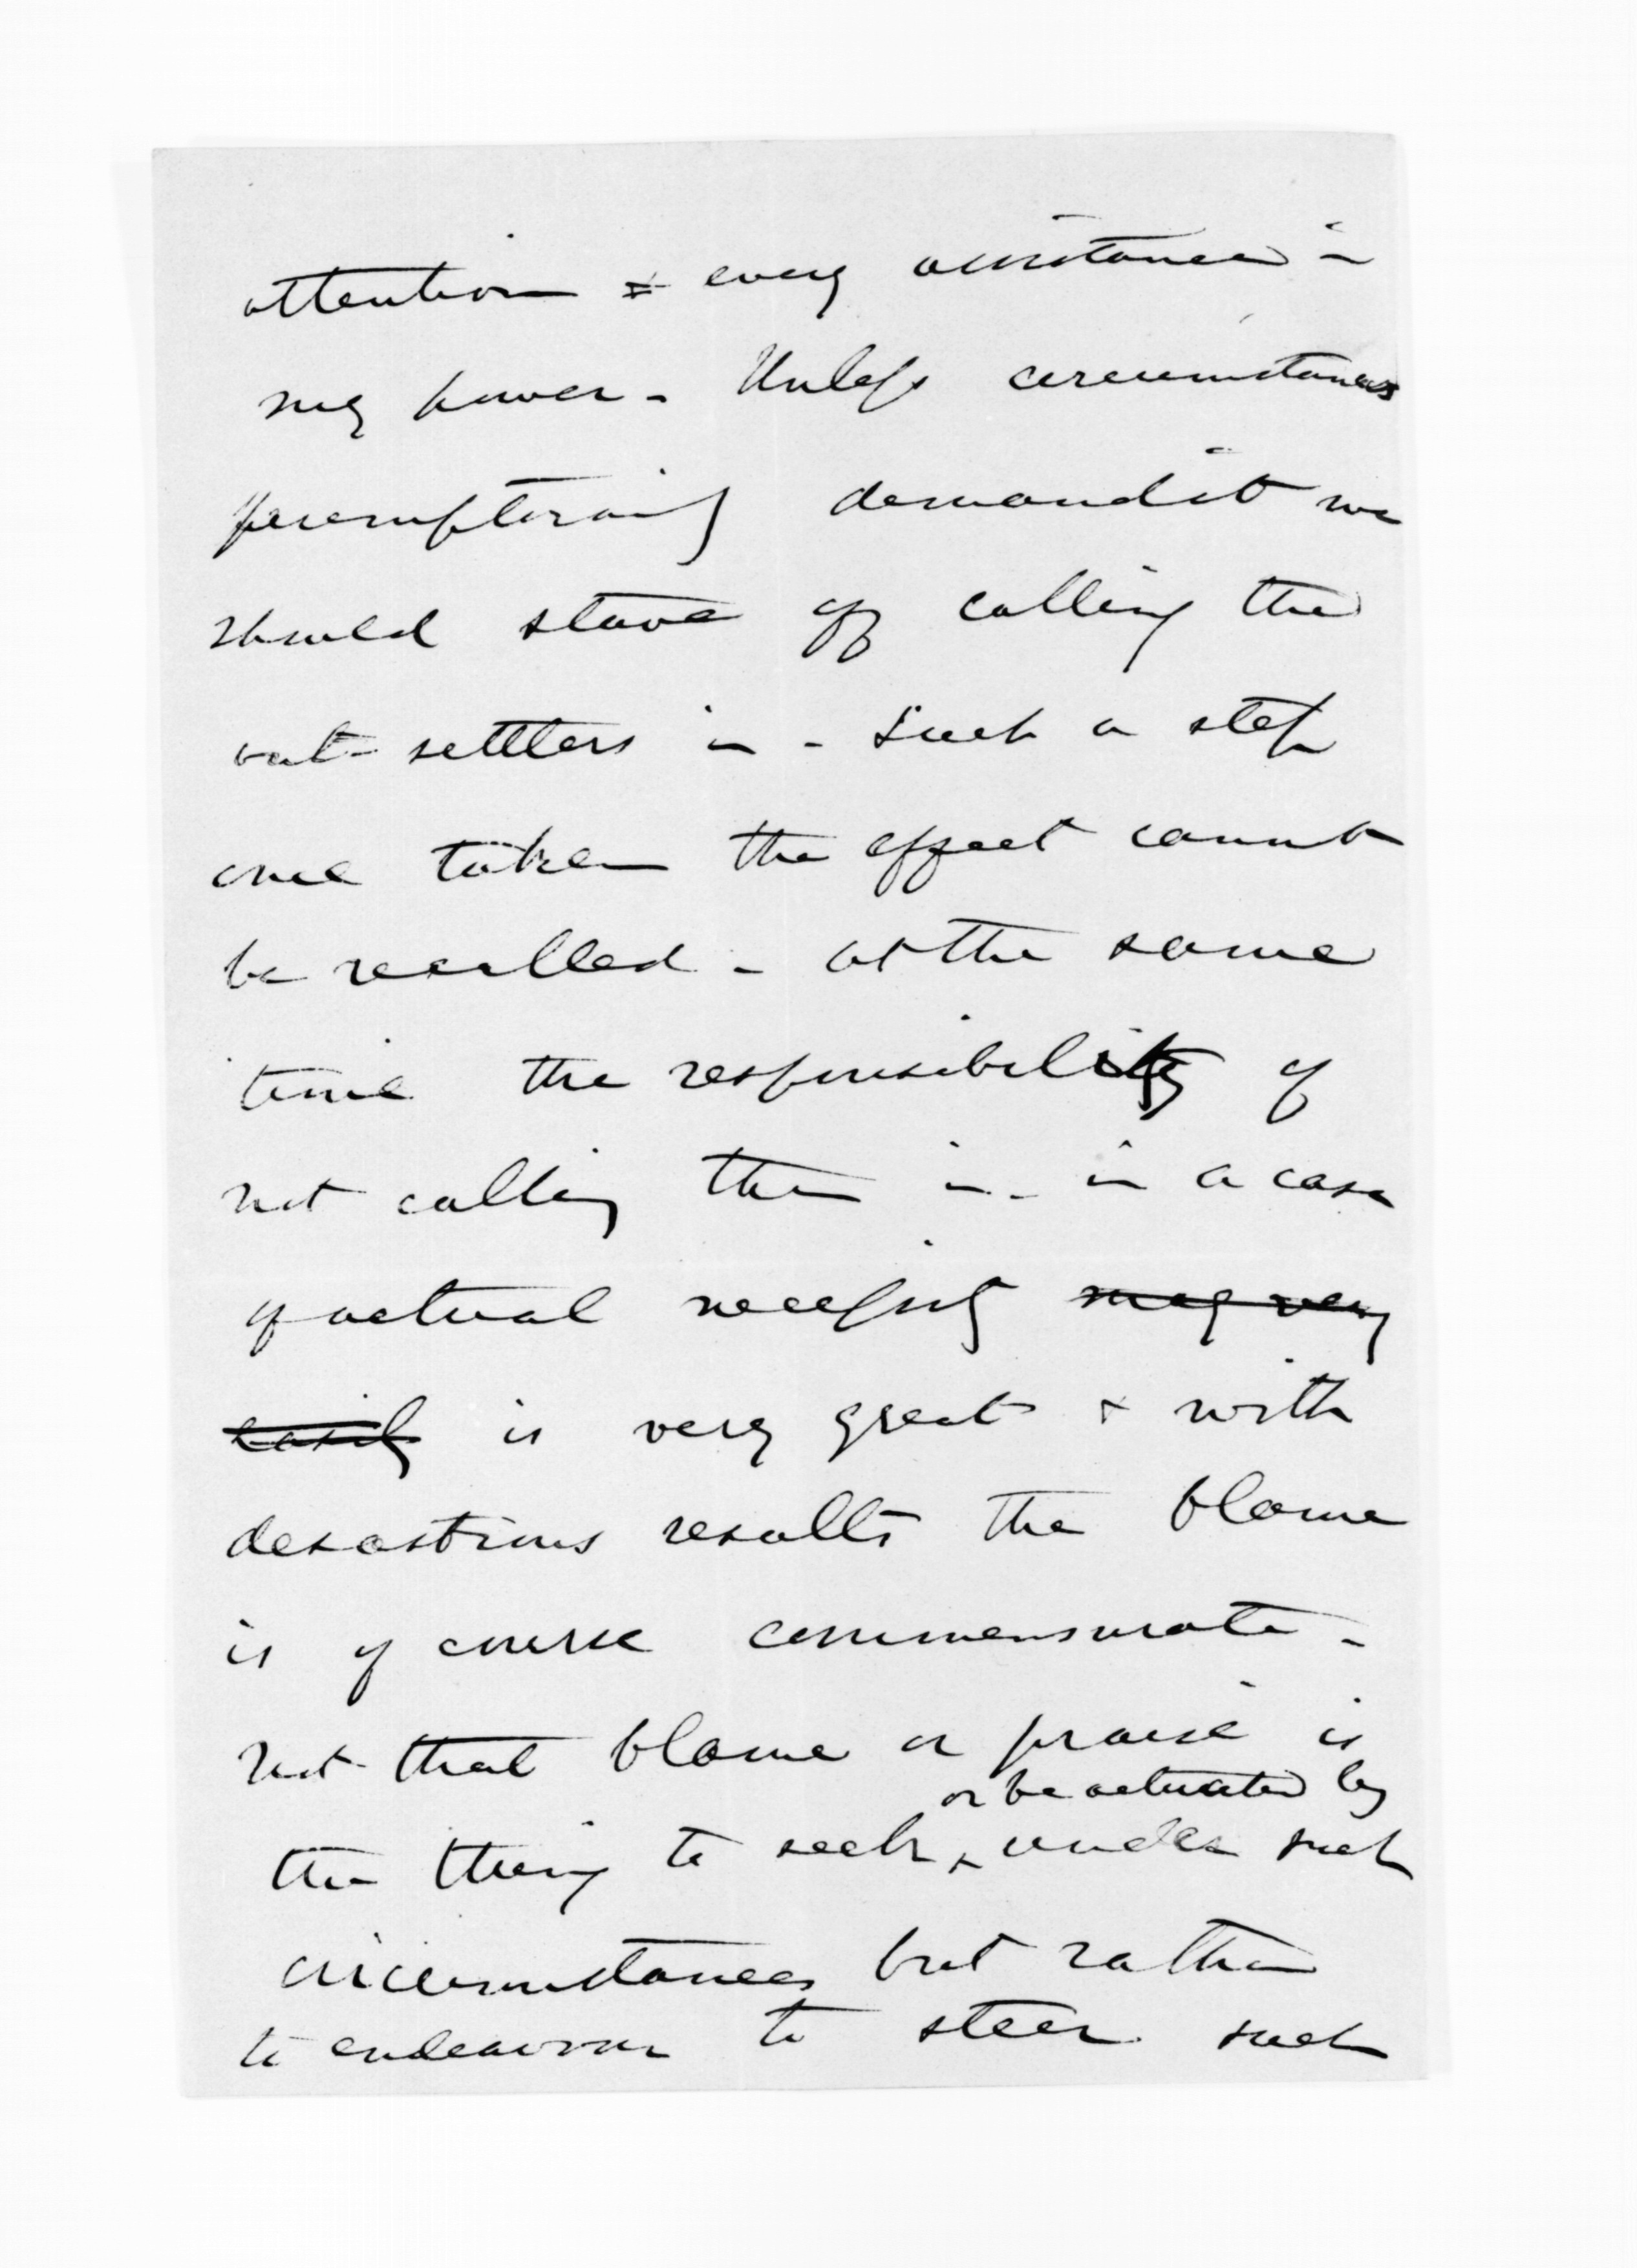 attention & every assistance in
my power - Unless circumstances
peremptorily demand it we
should stave off calling the
out-settlers in - Such a step
once taken the effect cannot
be recalled - at the same
time the responsibility of
not calling them in - in a case
of actual necessity may very
easily is very great & with
desastrous results the blame
is of course commensurate -
not that blame or praise is
or be actuated by
the thing to seek, under such
circumstances but rather
to endeavour to steer such